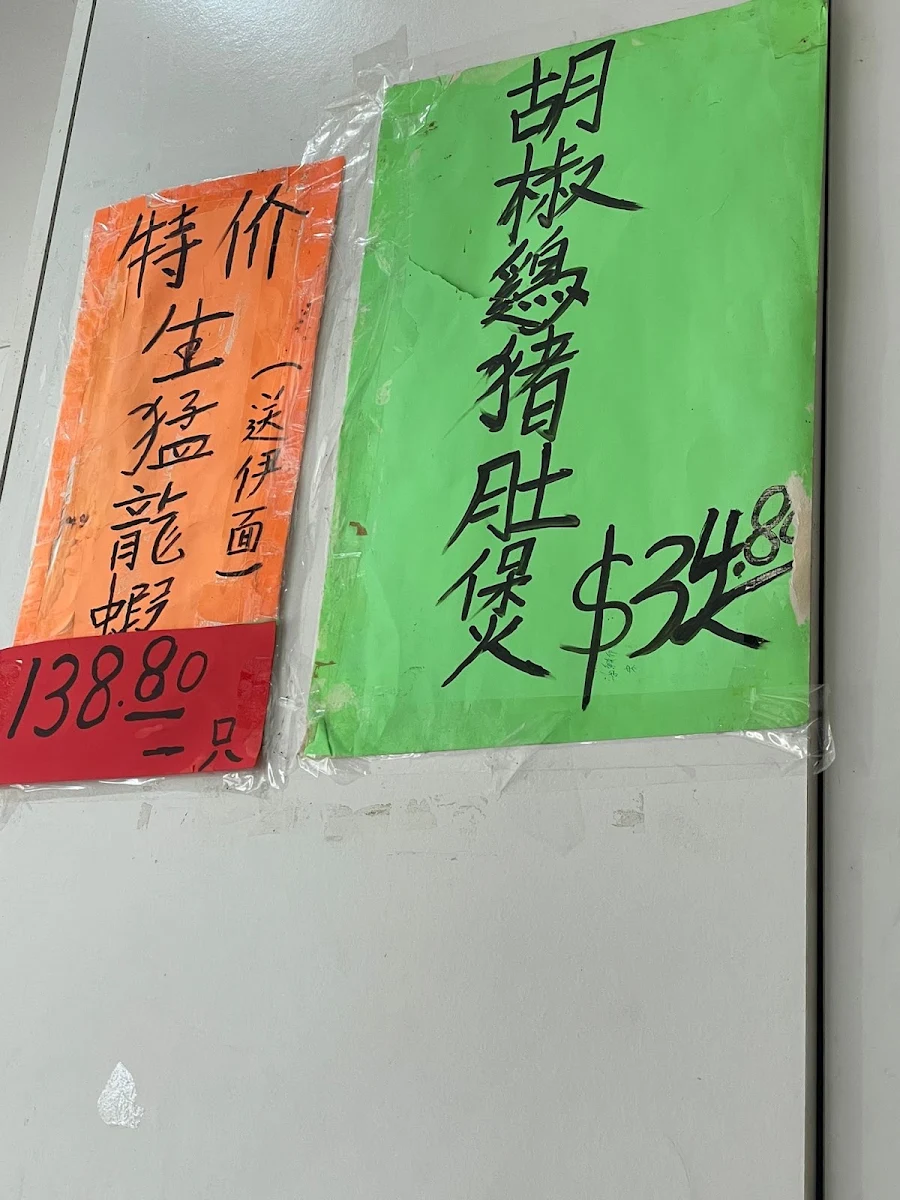 特价
生猛龍蝦
（送伊面）
138.80
一只
胡椒鷄猪肚煲
$34.80